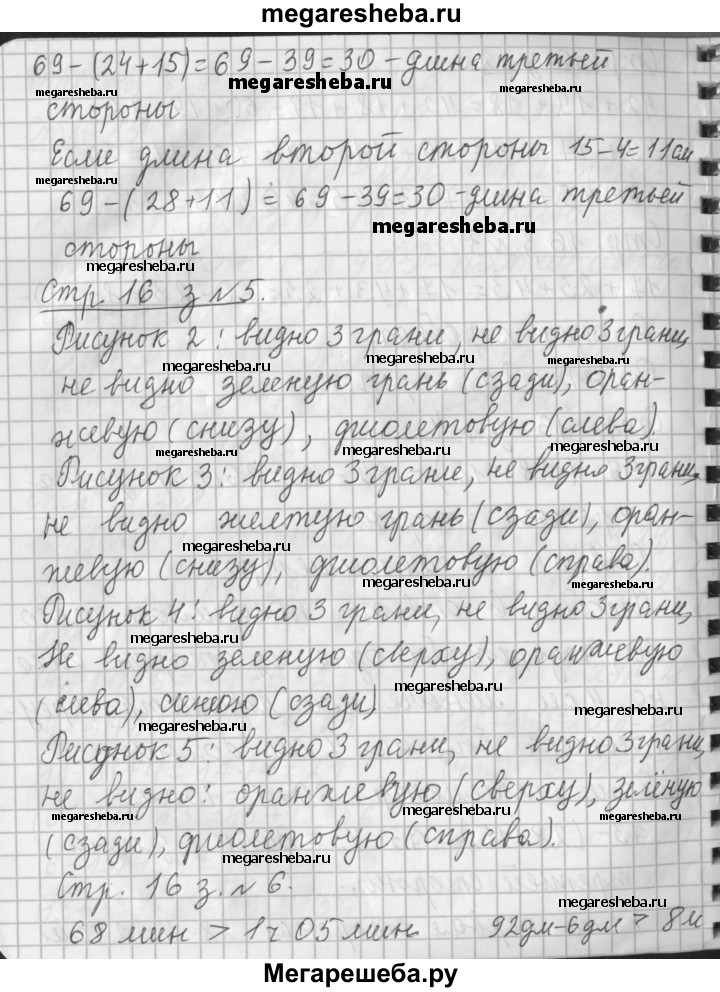 megaresheba.ru
69-(24+15)=69-39=30-длина третьей
megaresheba.ru megaresheba.ru megaresheba.ru
стороны
Если длина второй стороны 15-4=11см
megaresheba.ru
69-(28+11)=69-39=30-длина третьей
megaresheba.ru
стороны
megaresheba.ru
Стр. 16 з №5.
Рисунок 2: видно 3 грани, не видно 3 грани,
megaresheba.ru megaresheba.ru megaresheba.ru
не видно зеленую грань (сзади), оран-
жевую (снизу), фиолетовую (слева).
megaresheba.ru megaresheba.ru megaresheba.ru
Рисунок 3: видно 3 грани, не видно 3 грани,
не видно желтую грань (сзади), оран-
megaresheba.ru
жевую (снизу), фиолетовую (справа).
megaresheba.ru megaresheba.ru
Рисунок 4: видно 3 грани, не видно 3 грани,
megaresheba.ru megaresheba.ru
Не видно зеленую (сверху), оранжевую
megaresheba.ru
(слева), синюю (сзади)
megaresheba.ru
Рисунок 5: видно 3 грани, не видно 3 грани,
не видно: оранжевую (сверху), зелёную
megaresheba.ru megaresheba.ru
(сзади), фиолетовую (справа).
megaresheba.ru
Стр. 16 з. № 6.
megaresheba.ru
68 мин > 1ч 05 мин 92дм-6дм > 8м
megaresheba.ru
Мегарешеба.ру